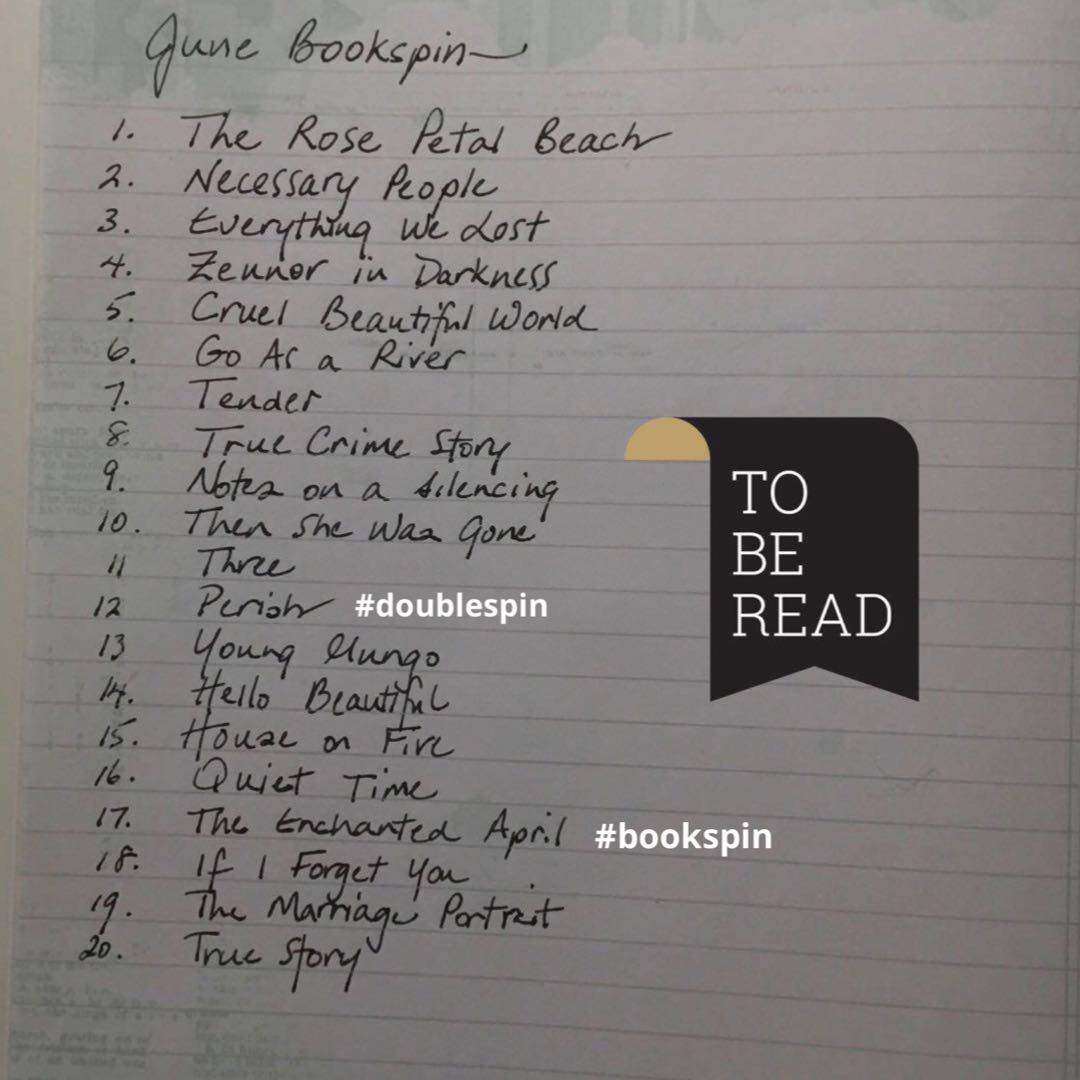 June Bookspin
1. The Rose Petal Beach
2. Necessary People
3. Everything We Lost
4. Zennor in Darkness
5. Cruel Beautiful World
6. Go As a River
7. Tender
8. True Crime Story
9. Notes on a Silencing
10. Then She Was Gone
11 Three
12 Perish #doublespin
13 Young Mungo
14. Hello Beautiful
15. House on Fire
16. Quiet Time
17. The Enchanted April #bookspin
18. If I Forget You
19. The Marriage Portrait
20. True Story
TO
BE
READ